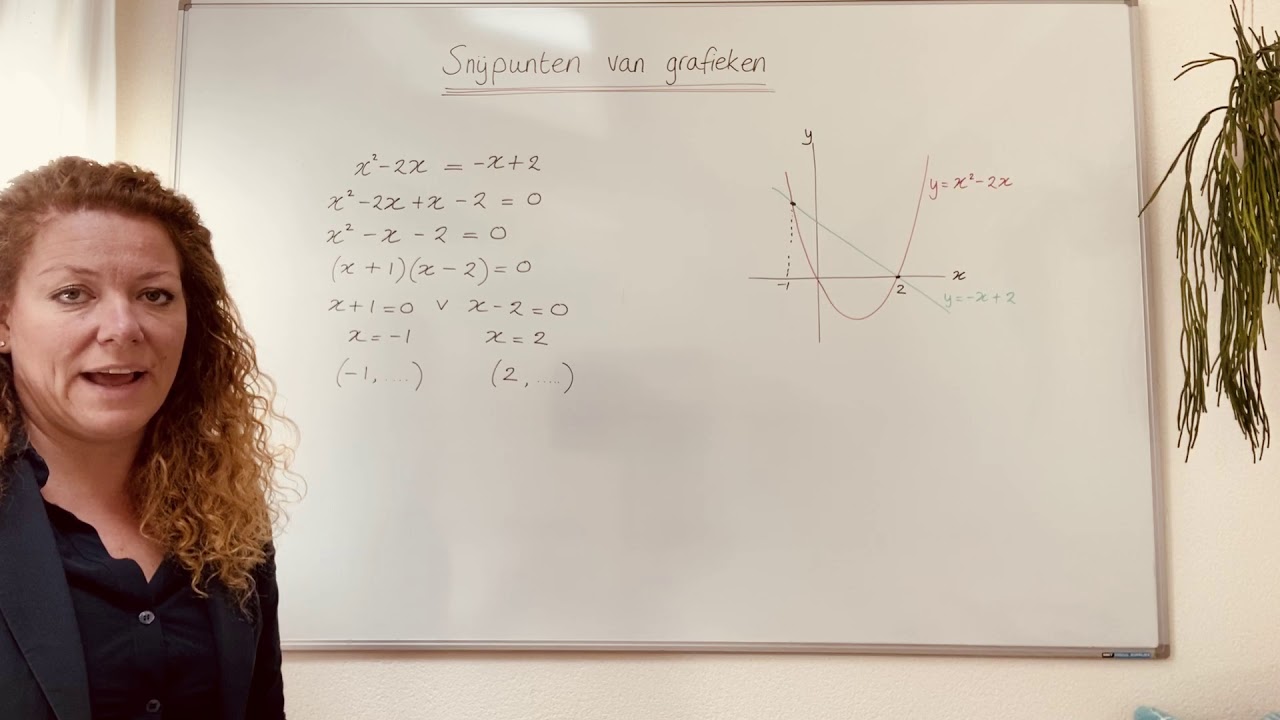 Snijpunten van grafieken
x²-2x = -x+2
x²-2x+x-2 = 0
x²-x-2 = 0
(x+1)(x-2)=0
x+1=0 v x-2=0
x=-1 x=2
(-1, ....) (2, .....)
y
y=x²-2x
x
-1
2
y=-x+2